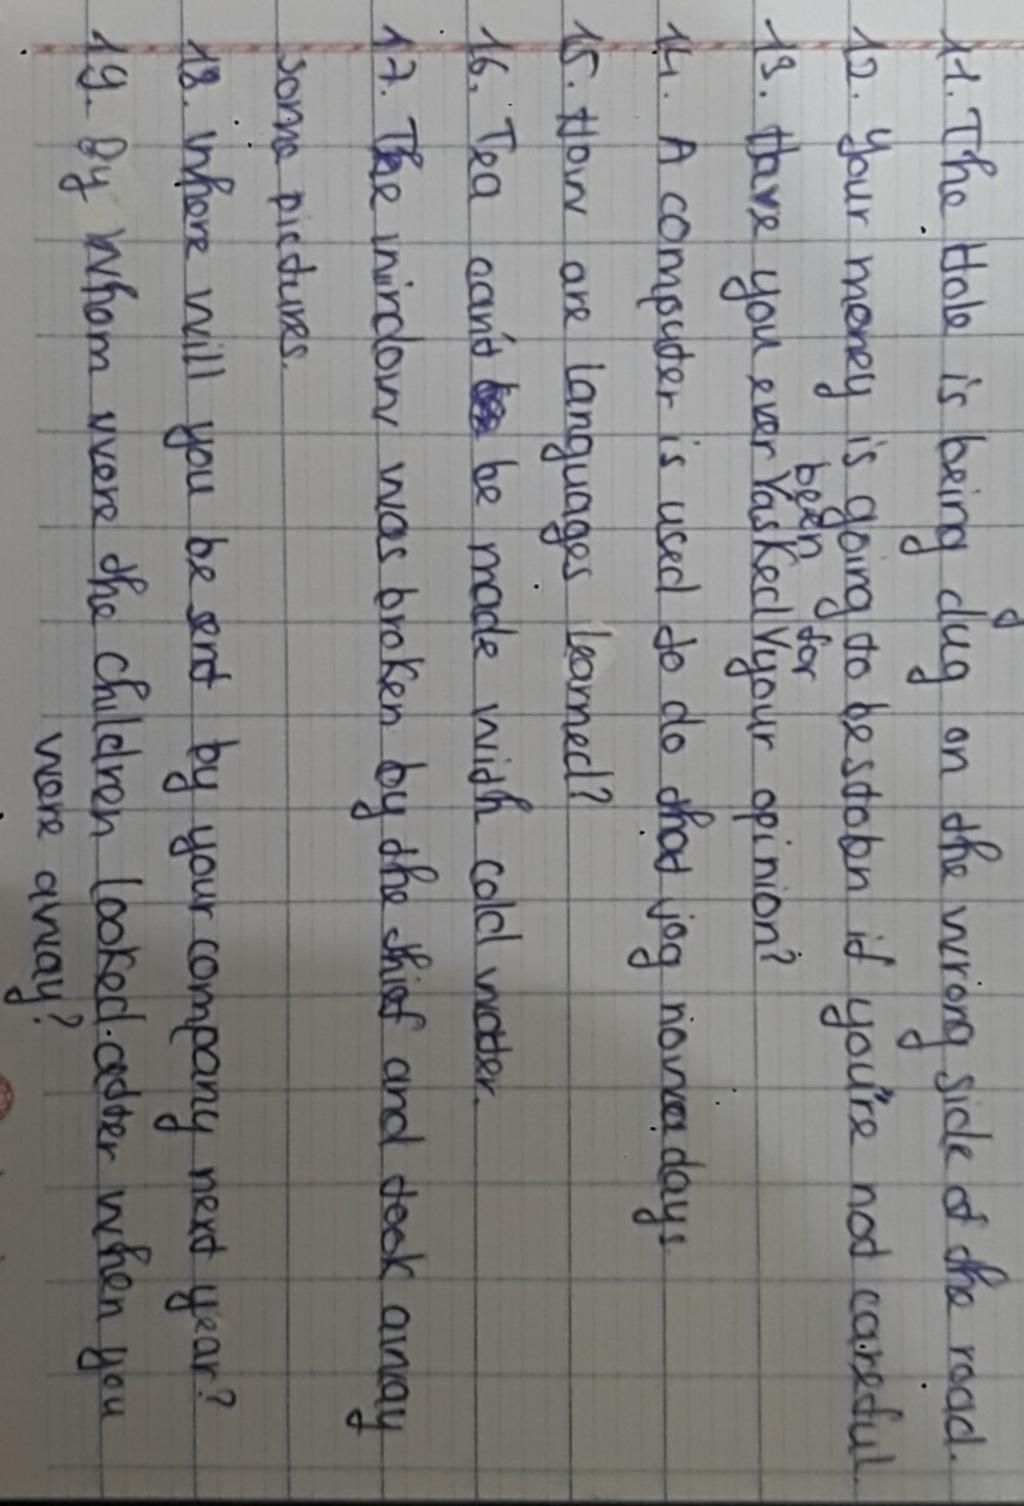 11. The Hole is being dug on the wrong side of the road.
12. Your money is going to be stolen if you're not careful.
13. Have you ever been asked for your opinion?
14. A computer is used to do that jog nowadays.
15. How are languages learned?
16. Tea can't be made with cold water.
17. The window was broken by the thief and took away
some pictures.
18. Where will you be sent by your company next year?
19. By whom were the children looked after when you
were away?